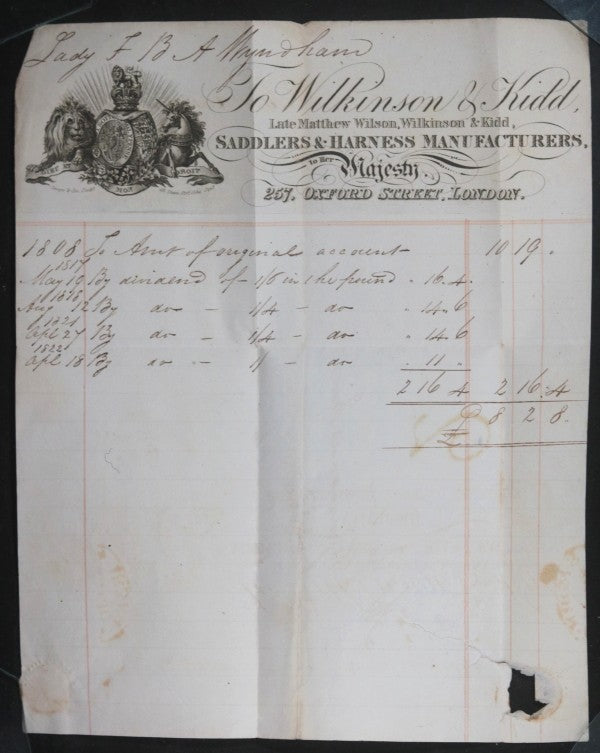 Lady F B A Wyndham
To Wilkinson & Kidd,
Late Matthew Wilson, Wilkinson & Kidd,
SADDLERS & HARNESS MANUFACTURERS,
to Her
Majesty.
257, OXFORD STREET, LONDON.
DIEU ET MON DROIT
1808 To Amt of original account 10 19 "
1817
May 19 By dividend of 1/6 in the pound " 16 . 4
1818
Aug 12 By do - 1/4 - do " 14 . 6
1821
Apl 27 By do - 1/4 - do " 14 . 6
1822
Apl 18 By do - 1/ - do " 11 "
2 16 4 2 16 . 4
£ 8 2 8